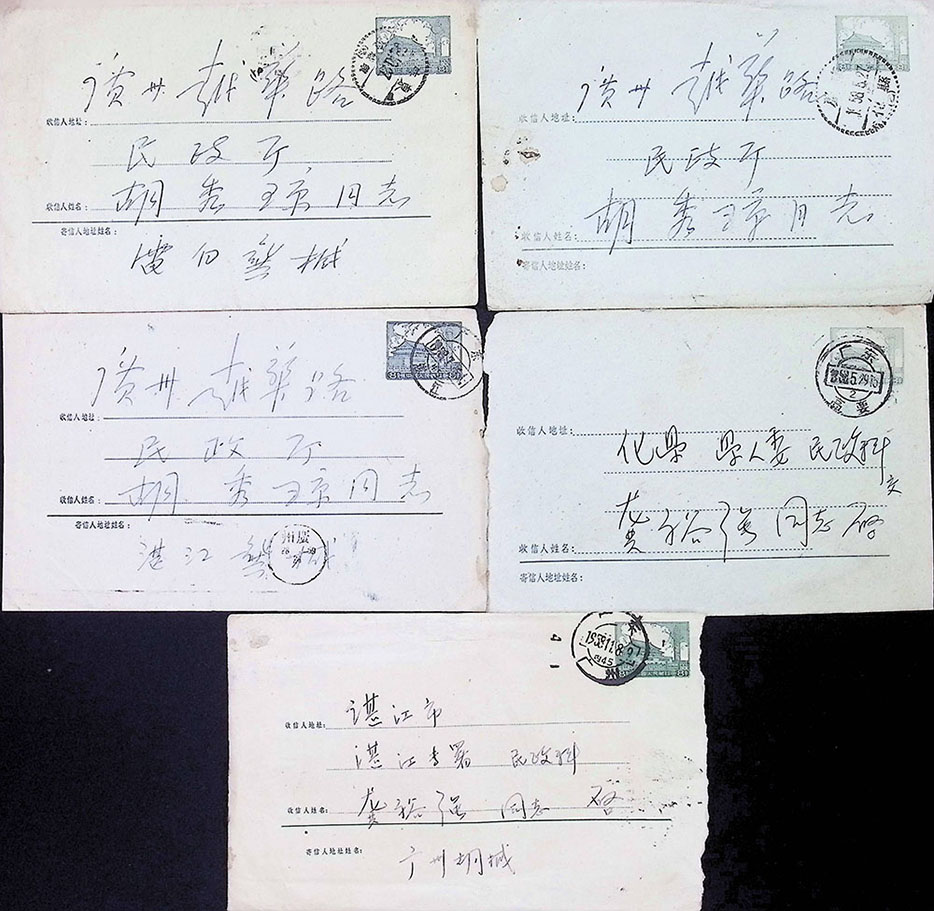 广州越華路
收信人地址：
民政厅
胡秀琼同志
收信人姓名：
寄信人地址姓名：
電白龔緘
广州越華路
收信人地址：
民政厅
胡秀琼同志
收信人姓名：
寄信人地址姓名：
广州越華路
收信人地址：
民政厅
胡秀琼同志
收信人姓名：
寄信人地址姓名：
湛江龔
广东
高要
收信人地址：
化县 县人委 民政科
交
龚裕强同志 启
收信人姓名：
寄信人地址姓名：
湛江市
收信人地址：
湛江专署 民政科
收信人姓名：
龚裕强 同志 启
寄信人地址姓名：
广州胡城